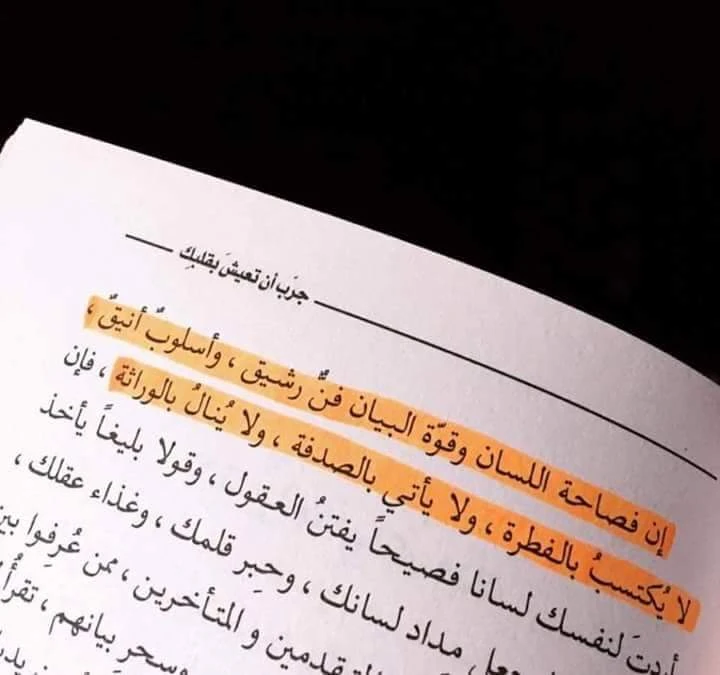 جرّب أن تعيشَ بقلبِك
إن فصاحة اللسان وقوّة البيان فنٌّ رشيق ، وأسلوبٌ أنيقٌ ،
لا يُكتسبُ بالفطرة ، ولا يأتي بالصدفة ، ولا يُنالُ بالوراثة ، فإن
أردتَ لنفسك لسانا فصيحاً يفتنُ العقول ، وقولا بليغاً يأخذ
مداد لسانك ، وحِبر قلمك ، وغذاء عقلك ،
و المتأخرين ، ممن عُرفوا
وسحرِ بيانهم ، تقرأُ